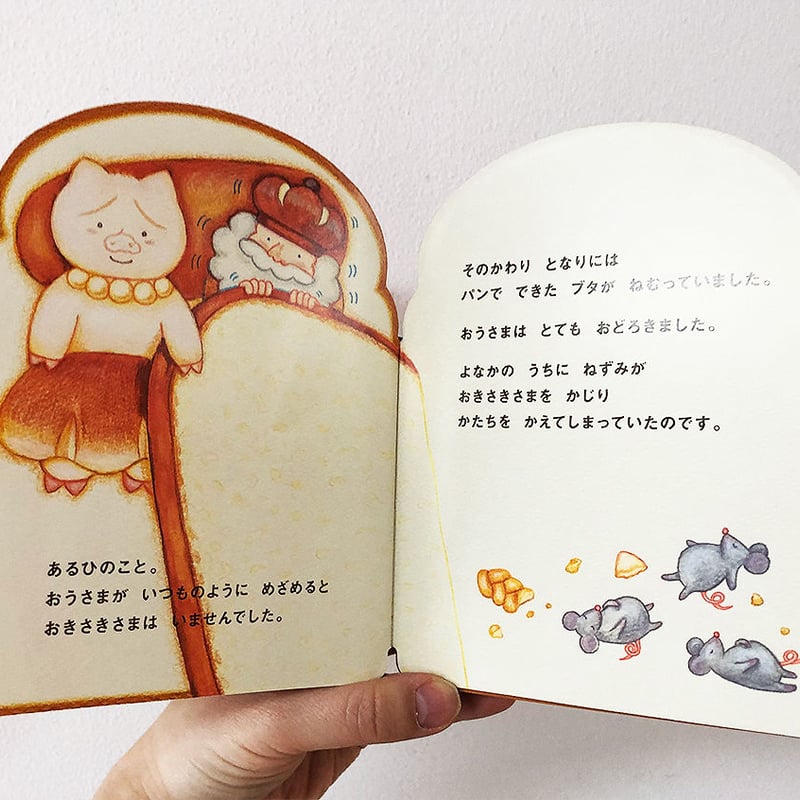 あるひのこと。
おうさまが いつものように めざめると
おきさきさまは いませんでした。
そのかわり となりには
パンで できた ブタが ねむっていました。
おうさまは とても おどろきました。
よなかの うちに ねずみが
おきさきさまを かじり
かたちを かえてしまっていたのです。